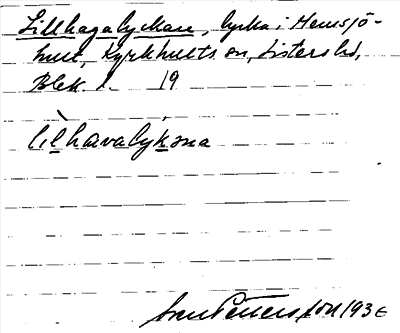 Lillhagalyckan, lycka i Hemsjö-
hult, Kyrkhults sn, Listers hd,
Blek. l. 19
lìlhavalykəna
Sven Petersson 1936